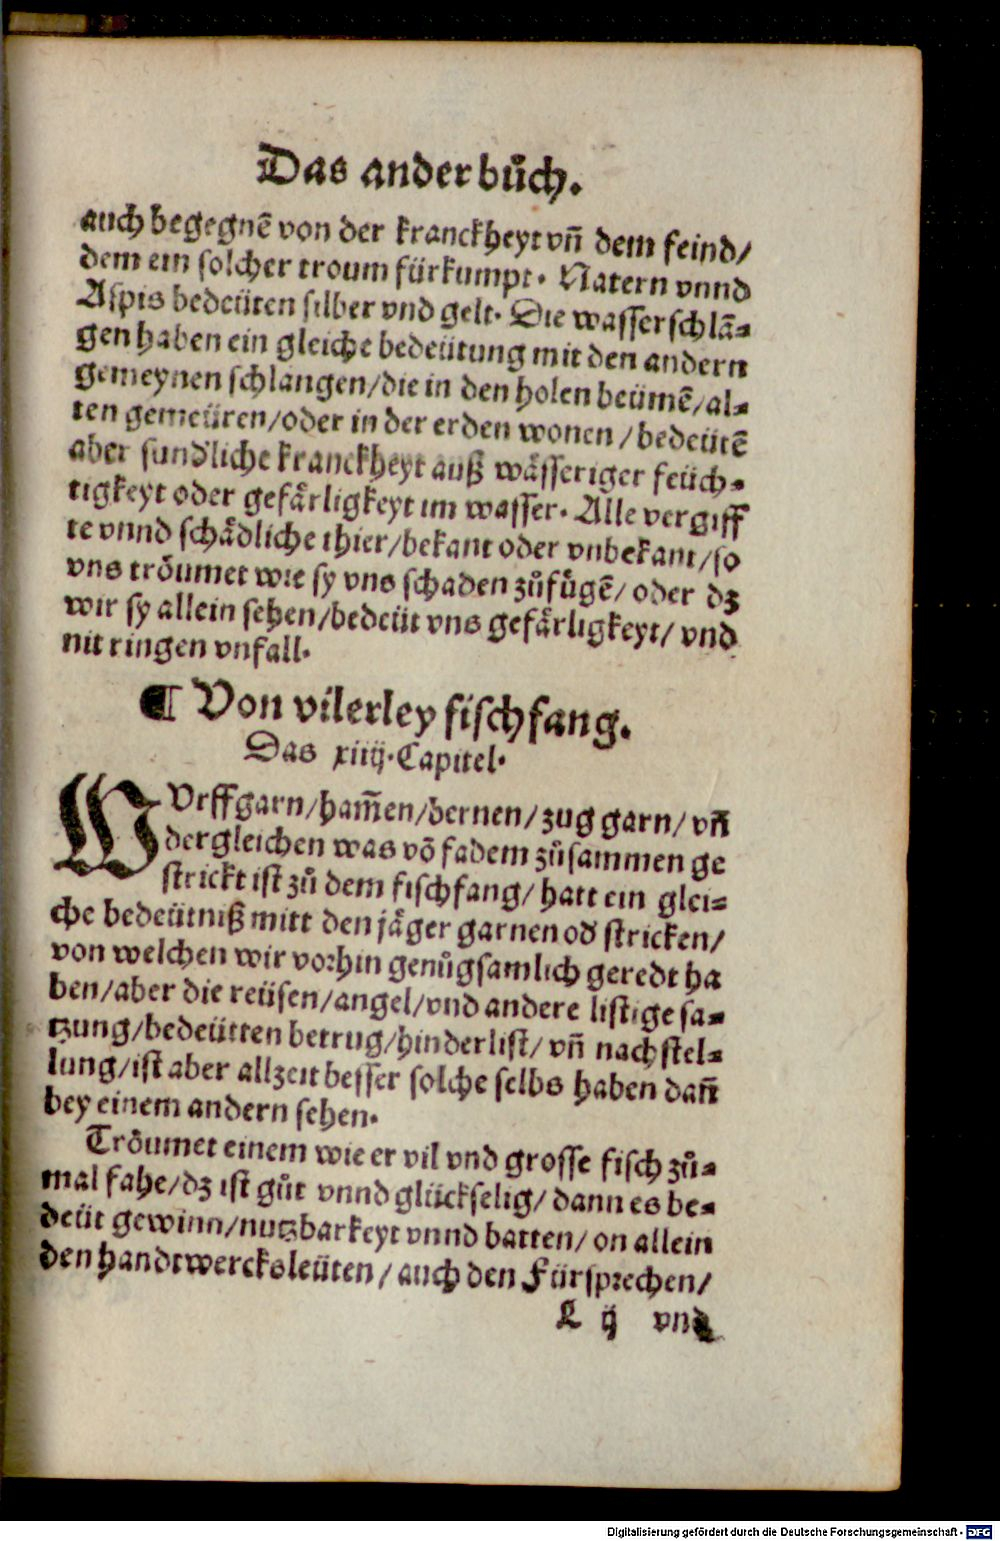 Das ander bůch.
auch begegnẽ von der kranckheyt vñ dem feind/
dem ein solcher troum fürkumpt. Natern vnnd
Aspis bedeüten silber vnd gelt. Die wasserschlã-
gen haben ein gleiche bedeütung mit den andern
gemeynen schlangen/die in den holen beümẽ/al-
ten gemeüren/oder in der erden wonen/bedeütẽ
aber sundliche kranckheyt auß wässeriger feüch-
tigkeyt oder gefärligkeyt im wasser. Alle vergiff
te vnnd schädliche thier/bekant oder vnbekant/so
vns tröumet wie sy vns schaden zůfügẽ/oder dz
wir sy allein sehen/bedeüt vns gefärligkeyt/vnd
nit ringen vnfall.
¶ Von vilerley fischfang.
Das xiiij. Capitel.
WVrffgarn/ham̃en/bernen/zug garn/vñ
dergleichen was võ fadem zůsammen ge
strickt ist zů dem fischfang/hatt ein glei-
che bedeütniß mitt den jäger garnen od̕ stricken/
von welchen wir vorhin genůgsamlich geredt ha
ben/aber die reüsen/angel/vnd andere listige sa-
tzung/bedeütten betrug/hinderlist/vñ nachstel-
lung/ist aber allzeit besser solche selbs haben dañ
bey einem andern sehen.
Tröumet einem wie er vil vnd grosse fisch zů-
mal fahe/dz ist gůt vnnd glückselig/dann es be-
deüt gewinn/nutzbarkeyt vnnd batten/on allein
den handtwercksleüten/auch den Fürsprechen/
K ij vnd
Digitalisierung gefördert durch die Deutsche Forschungsgemeinschaft - DFG